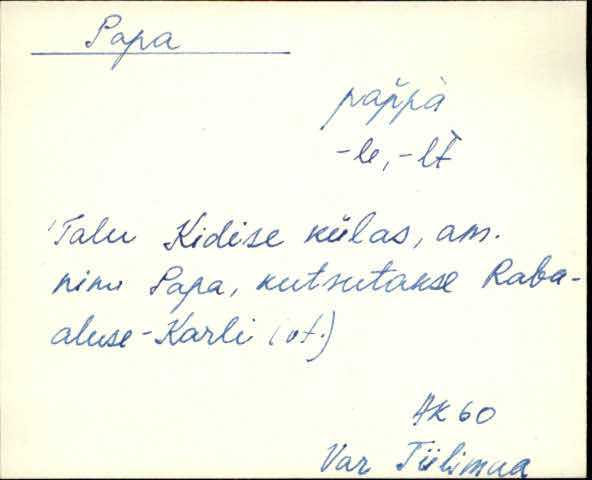 Papa
păppà
-le, -lt
Talu Kidise külas, am.
nimi Papa, kutsutakse Raba-
aluse-Karli (vt.)
AK 60
Var Tiilimaa